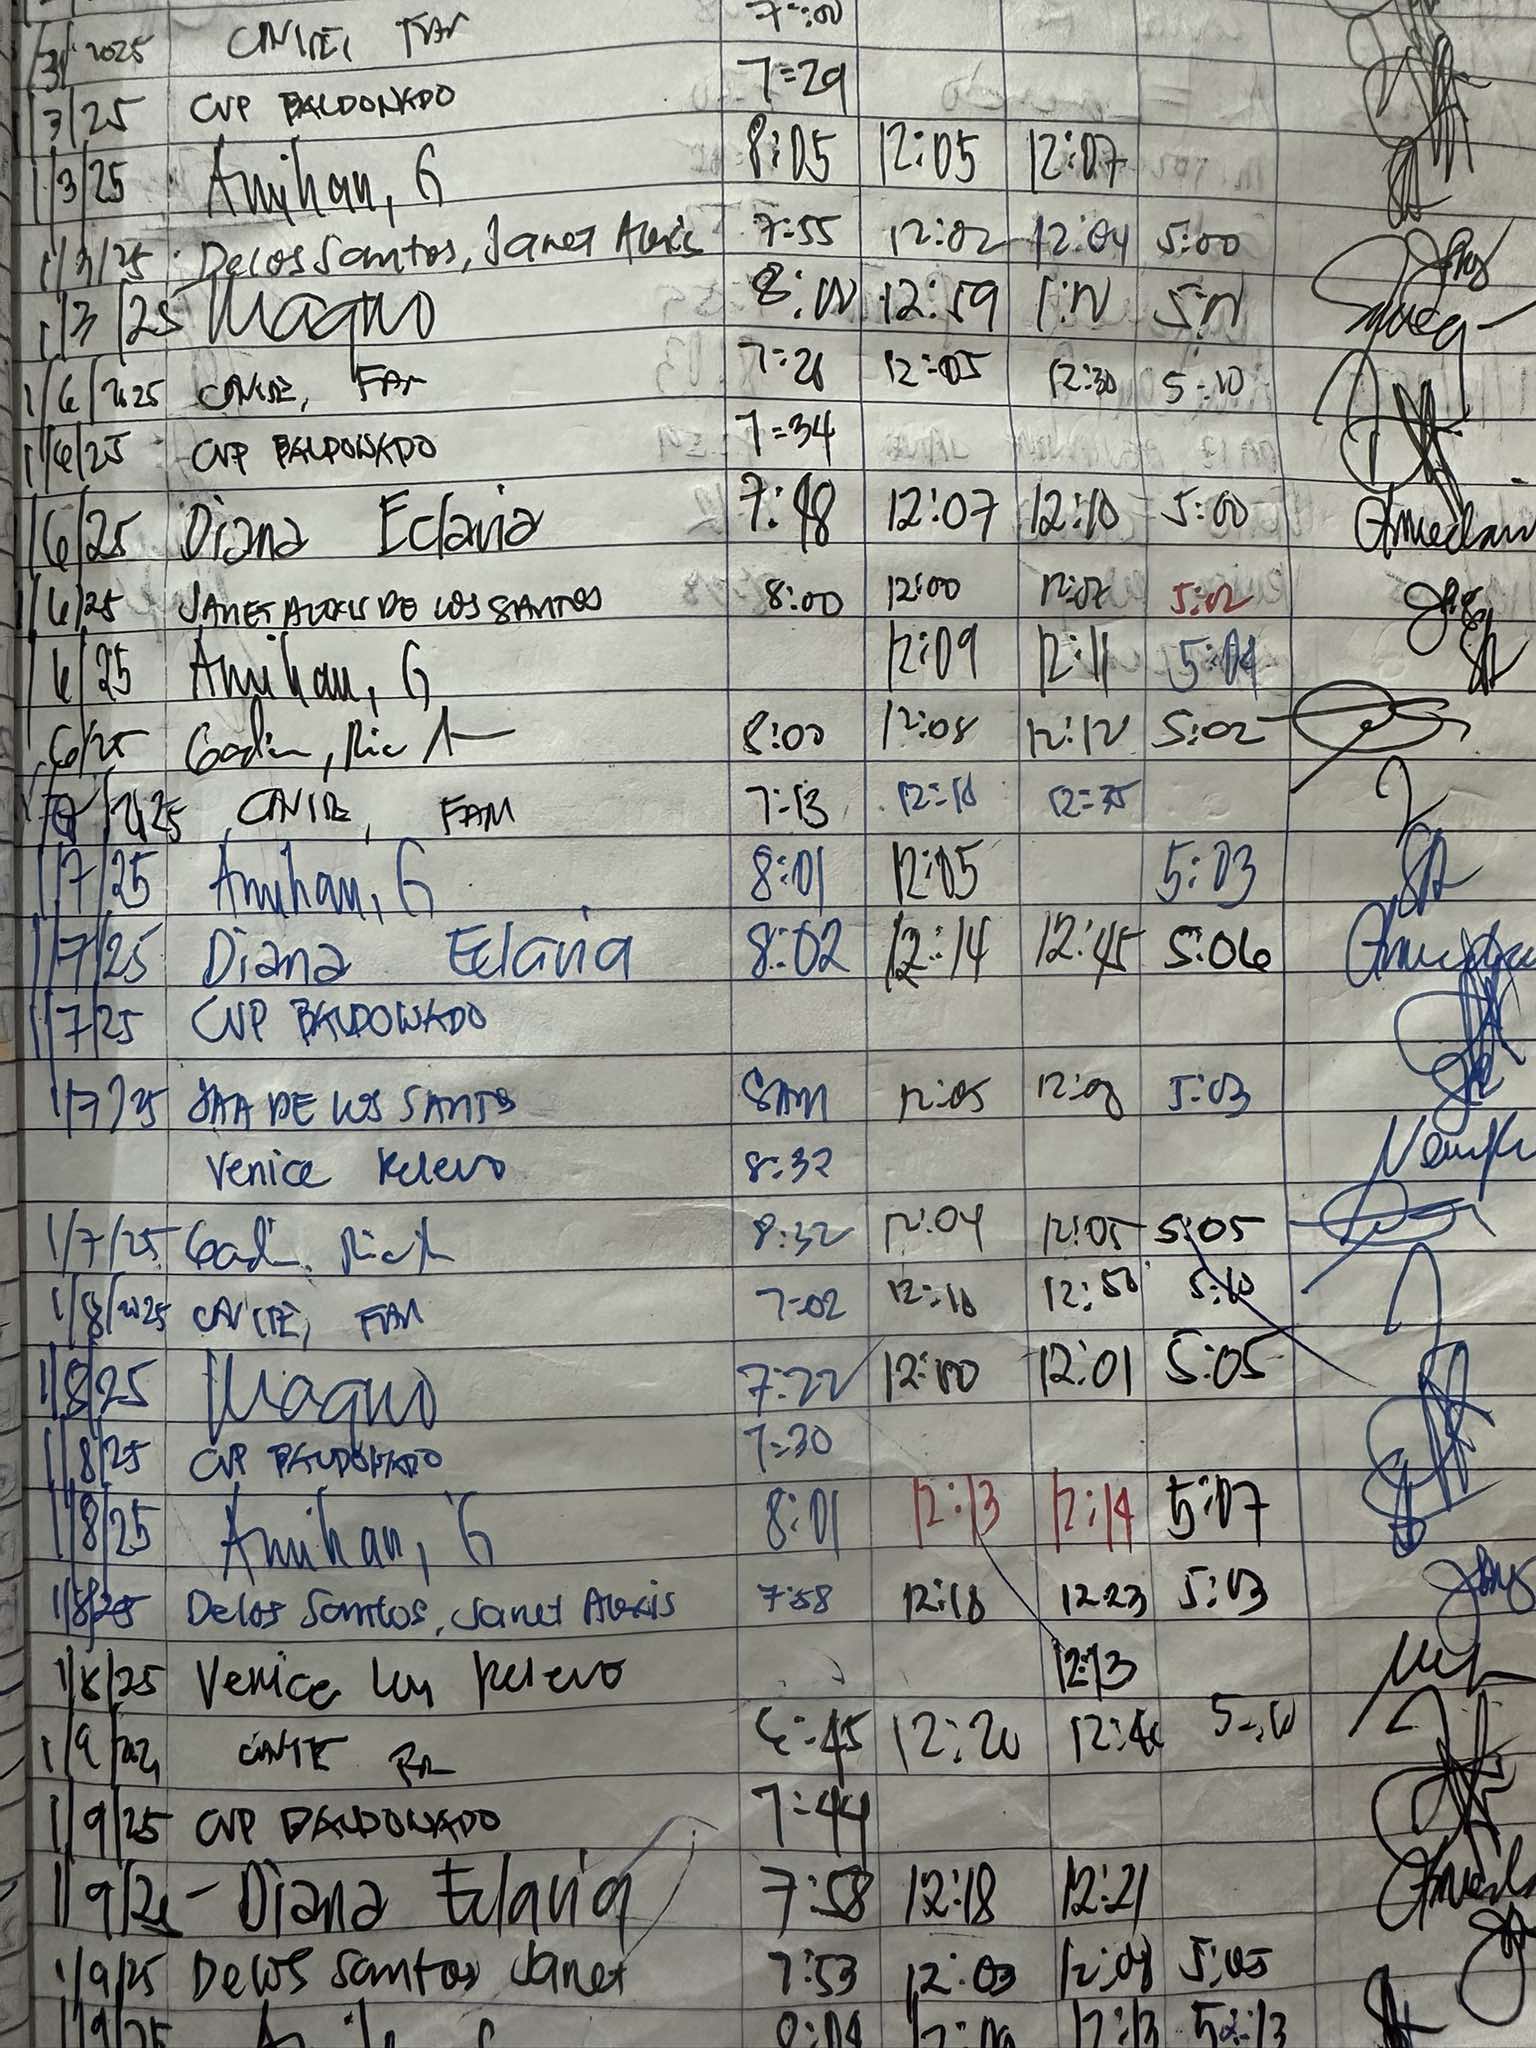 /3/ 2025 CANTE, FAM 7=00
/3/25 CVP BALDONADO 7=29
1/3/25 Amihan, G 8:05 12:05 12:07
1/3/25 Delos Santos, Janet Alexis 7:55 12:02 12:04 5:00
1/3/25 Magno 8:00 12:59 1:N 5:N
1/6/2025 CANTE, FAM 7:21 12:05 12:30 5:10
1/6/25 CVP BALDONADO 7=34
1/6/25 Diana Eclavia 7:48 12:07 12:10 5:00
1/6/25 JANET ALEXIS DE LOS SANTOS 8:00 12:00 12:02 5:02
1/6/25 Amihan, G 12:09 12:11 5:04
/6/25 Gadin, Ric 8:00 12:08 12:12 5:02
/2025 CANTE, FAM 7:13 12=10 12=35
1/7/25 Amihan, G 8:01 12:05 5:03
1/7/25 Diana Eclavia 8:02 12:14 12:45 5:06
1/7/25 CVP BALDONADO
1/7/25 JAA DE LOS SANTOS 8AM 12:05 12:08 5:03
Venice Relevo 8:32
1/7/25 Gadin, Ric 8:32 12:04 12:05 5:05
1/8/2025 CANTE, FAM 7:02 12:10 12:50 5:10
1/8/25 Magno 7:22 12:00 12:01 5:05
1/8/25 CVP BALDONADO 7:30
1/8/25 Amihan, G 8:01 12:13 12:14 5:07
1/8/25 Delos Santos, Janet Alexis 7:58 12:18 12:23 5:03
1/8/25 Venice Relevo 12:13
1/9/ CANTE 6:45 12:20 12:40 5:10
1/9/25 CVP BALDONADO 7:44
1/9/25 - Diana Eclavia 7:58 12:18 12:21
1/9/25 Delos Santos Janet 7:53 12:03 12:08 5:05
1/9/25 8:04 12:09 12:13 5:13